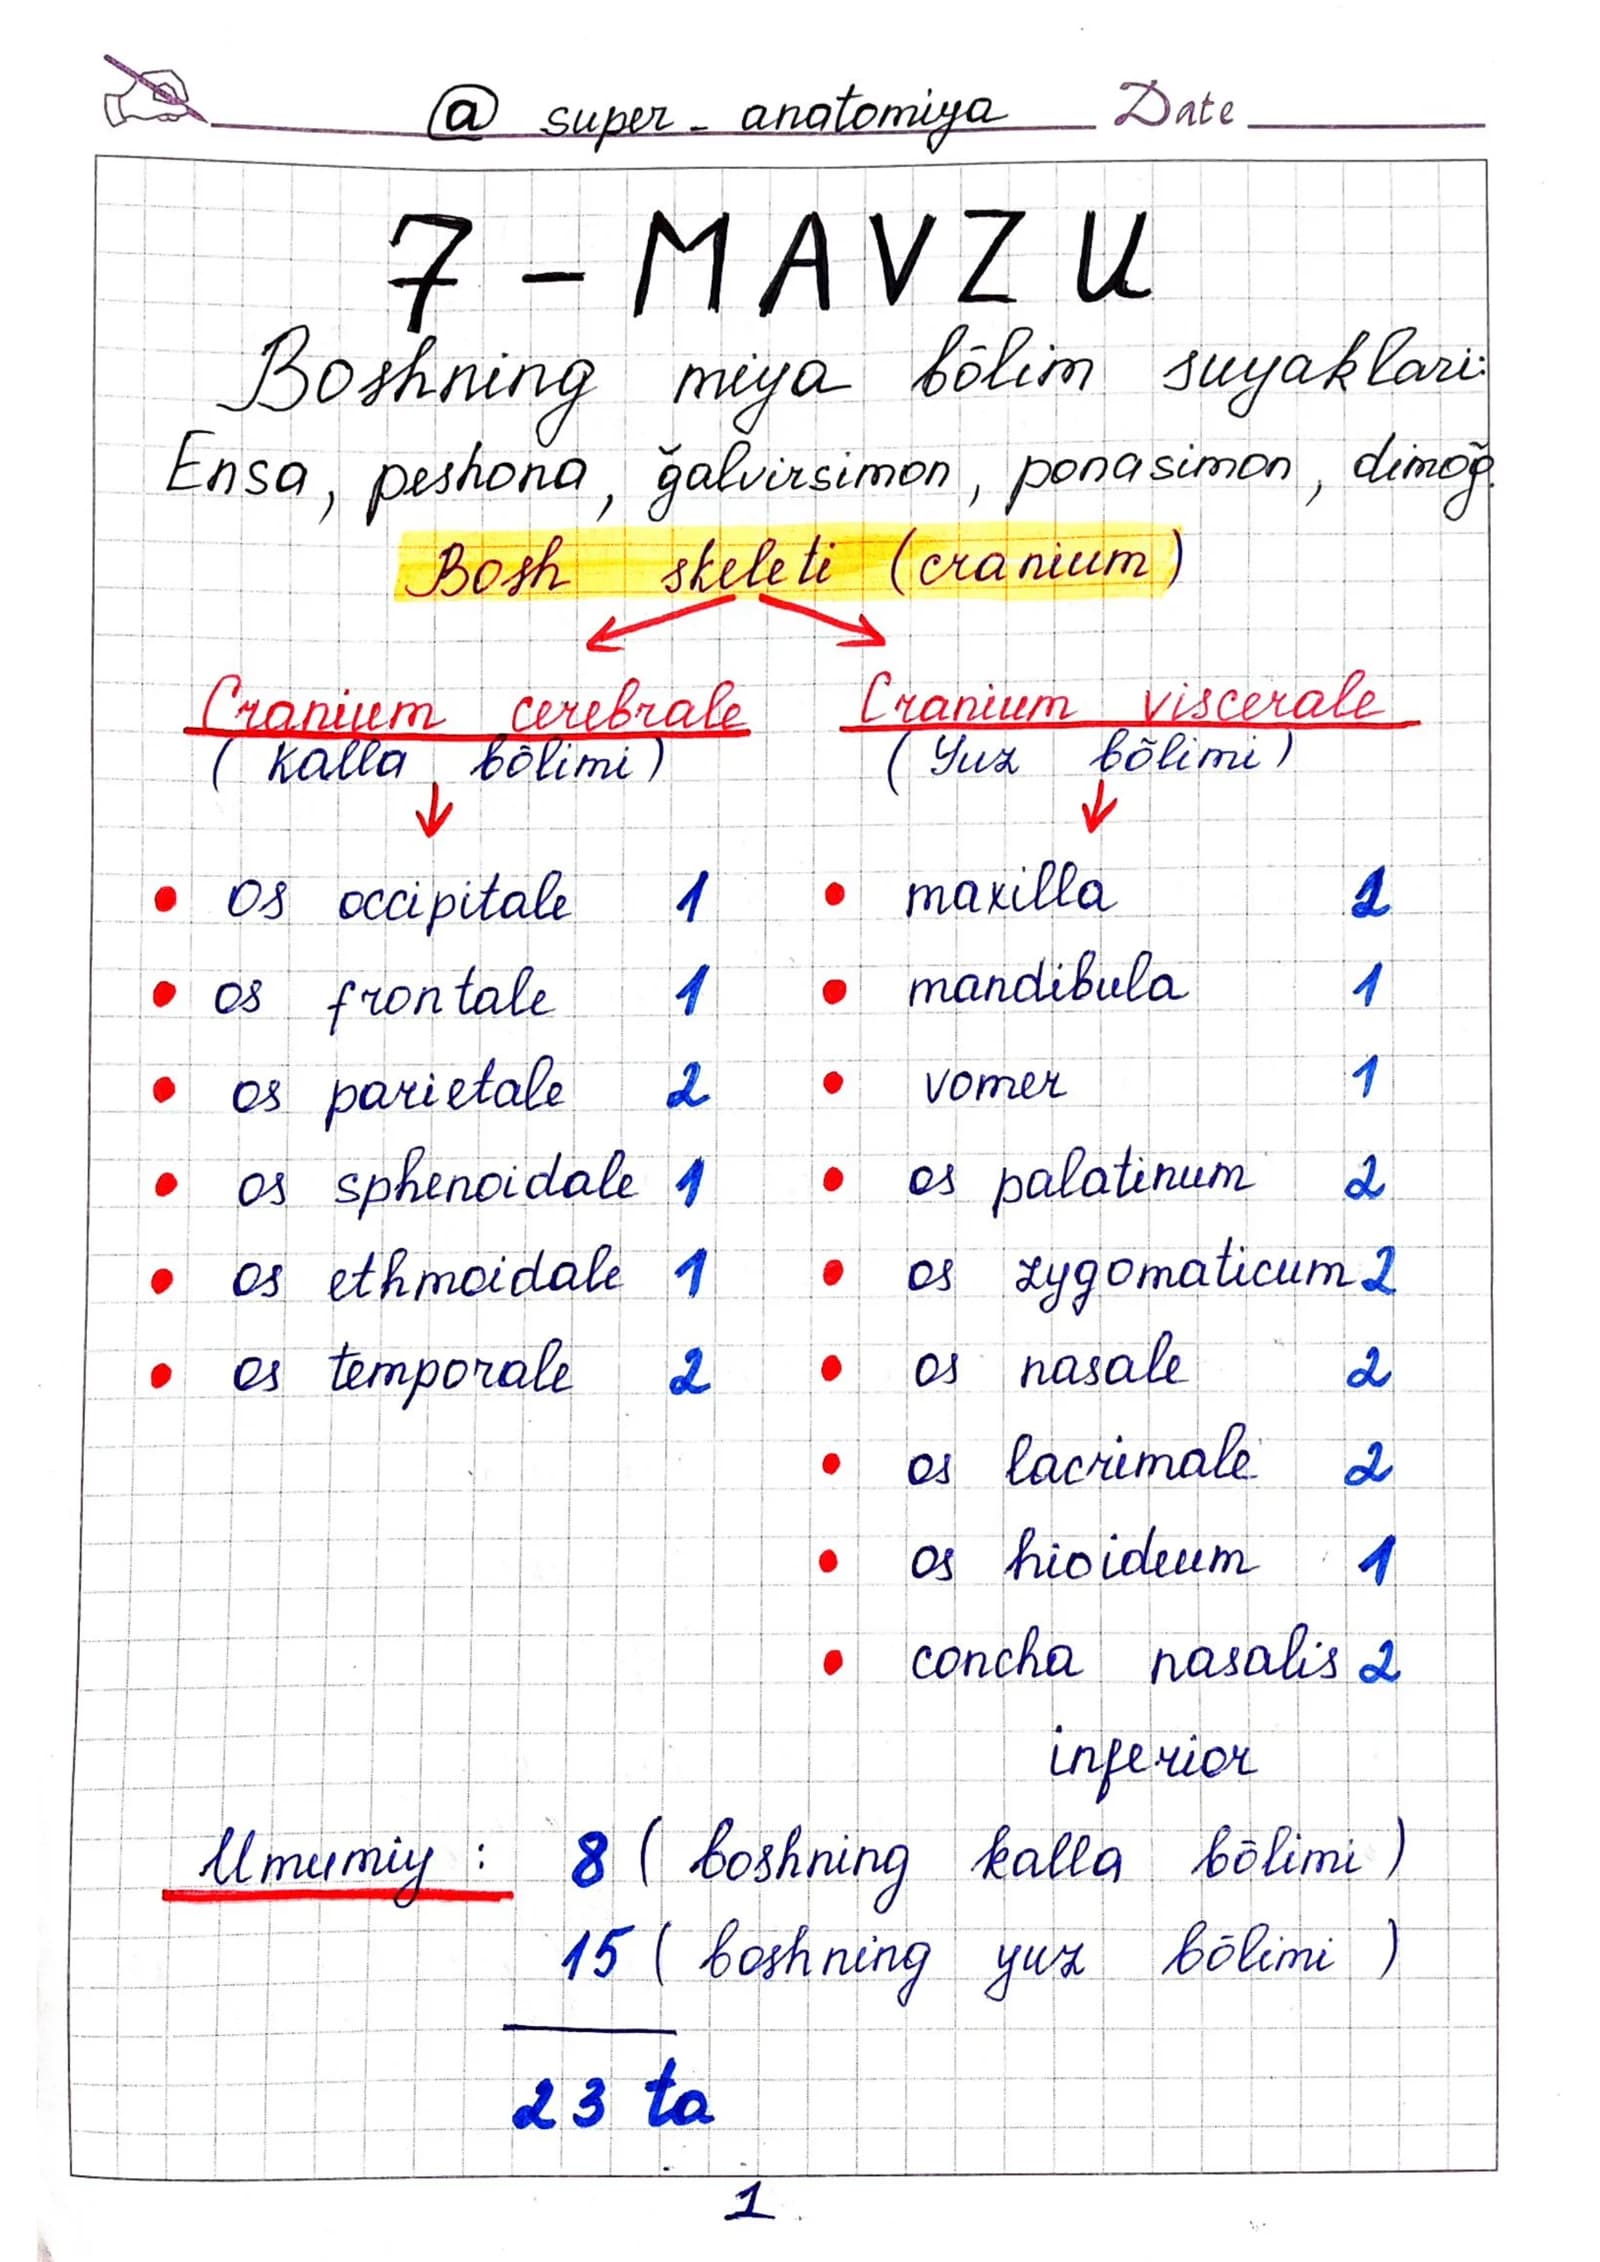 @ super_anatomiya Date
7-MAVZU
Boshning miya bõlim suyaklari:
Ensa, peshona, ğalvirsimon, ponasimon, dimoğ.
Bosh skeleti (cranium)
Cranium cerebrale
(kalla bõlimi)
• Os occipitale 1
• os frontale 1
• os parietale 2
• os sphenoidale 1
• os ethmoidale 1
• os temporale 2
Cranium viscerale
(Yuz bõlimi)
• maxilla 2
• mandibula 1
• vomer 1
• os palatinum 2
• os zygomaticum 2
• os nasale 2
• os lacrimale 2
• os hioideum 1
• concha nasalis 2
inferior
Umumiy: 8 (boshning kalla bõlimi)
15 (boshning yuz bõlimi)
23 ta
1